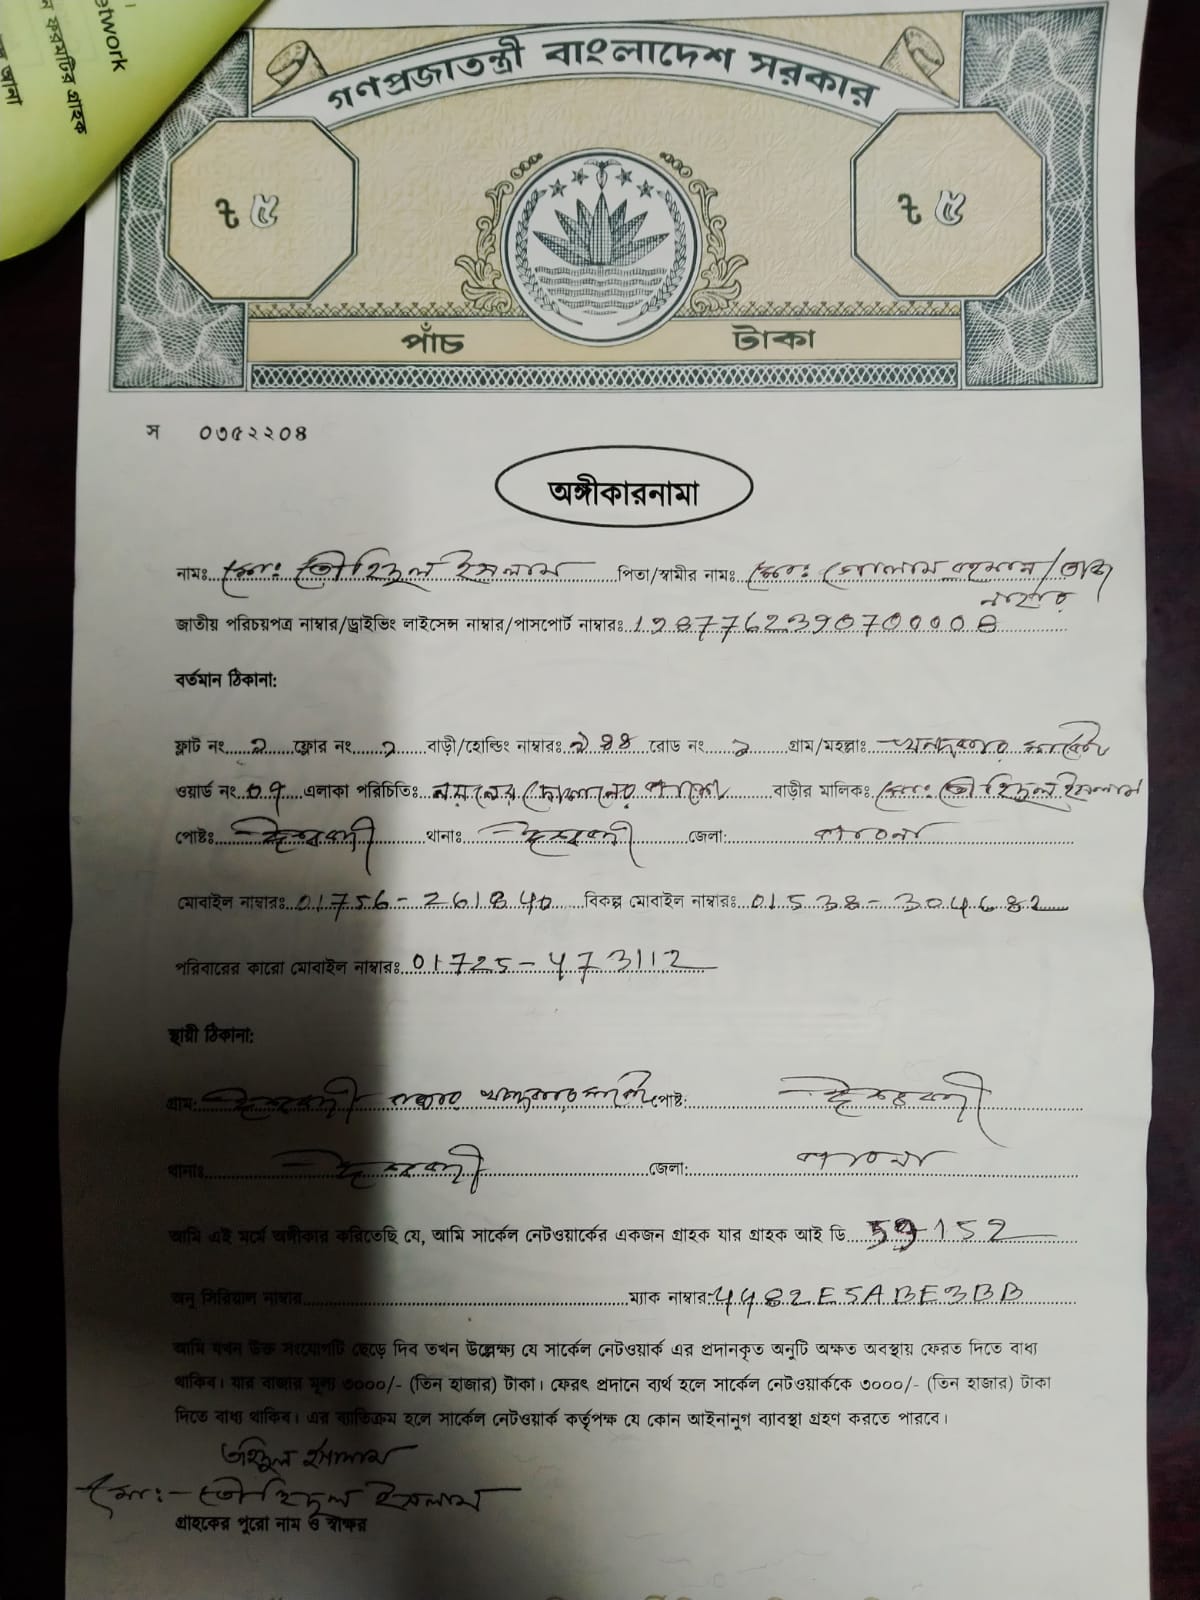 etwork
ন ফরমটির গ্রাহক
জানা
গণপ্রজাতন্ত্রী বাংলাদেশ সরকার
৳ ৫ ৳ ৫
পাঁচ টাকা
স ০৩৫২২০৪
অঙ্গীকারনামা
নামঃ মোঃ তৌহিদুল ইসলাম পিতা/স্বামীর নামঃ মোঃ গোলাম রহমান/
নাহার
জাতীয় পরিচয়পত্র নাম্বার/ড্রাইভিং লাইসেন্স নাম্বার/পাসপোর্ট নাম্বারঃ 19877623907000008
বর্তমান ঠিকানা:
ফ্লাট নং ২ ফ্লোর নং ২ বাড়ী/হোল্ডিং নাম্বারঃ ২৪৪ রোড নং গ্রাম/মহল্লাঃ
ওয়ার্ড নং 07 এলাকা পরিচিতিঃ নয়নের দোকানের পাশে বাড়ীর মালিকঃ মোঃ তৌহিদুল ইসলাম
পোষ্টঃ ঈশ্বরদী থানাঃ ঈশ্বরদী জেলা: পাবনা
মোবাইল নাম্বারঃ 01756-261840 বিকল্প মোবাইল নাম্বারঃ 01538-304682
পরিবারের কারো মোবাইল নাম্বারঃ 01725-473112
স্থায়ী ঠিকানা:
গ্রাম: ঈশ্বরদী পোষ্ট: ঈশ্বরদী
থানাঃ ঈশ্বরদী জেলা: পাবনা
আমি এই মর্মে অঙ্গীকার করিতেছি যে, আমি সার্কেল নেটওয়ার্কের একজন গ্রাহক যার গ্রাহক আই ডি 59152
অনু সিরিয়াল নাম্বার ম্যাক নাম্বার: 4482E5ABE3BB
আমি যখন উক্ত সংযোগটি ছেড়ে দিব তখন উল্লেক্ষ্য যে সার্কেল নেটওয়ার্ক এর প্রদানকৃত অনুটি অক্ষত অবস্থায় ফেরত দিতে বাধ্য
থাকিব। যার বাজার মূল্য ৩০০০/- (তিন হাজার) টাকা। ফেরৎ প্রদানে ব্যর্থ হলে সার্কেল নেটওয়ার্ককে ৩০০০/- (তিন হাজার) টাকা
দিতে বাধ্য থাকিব। এর ব্যতিক্রম হলে সার্কেল নেটওয়ার্ক কর্তৃপক্ষ যে কোন আইনানুগ ব্যাবস্থা গ্রহণ করতে পারবে।
তহিদুল ইসলাম
মোঃ- তৌহিদুল ইসলাম
গ্রাহকের পুরো নাম ও স্বাক্ষর